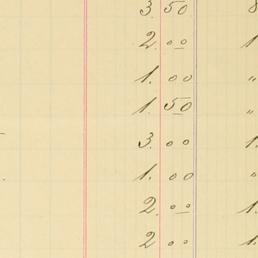 3. 50 8
2. 00 1
1. 00 "
1. 50 "
3. 00 1.
1. 00 "
2. 00 1.
2 00 1.